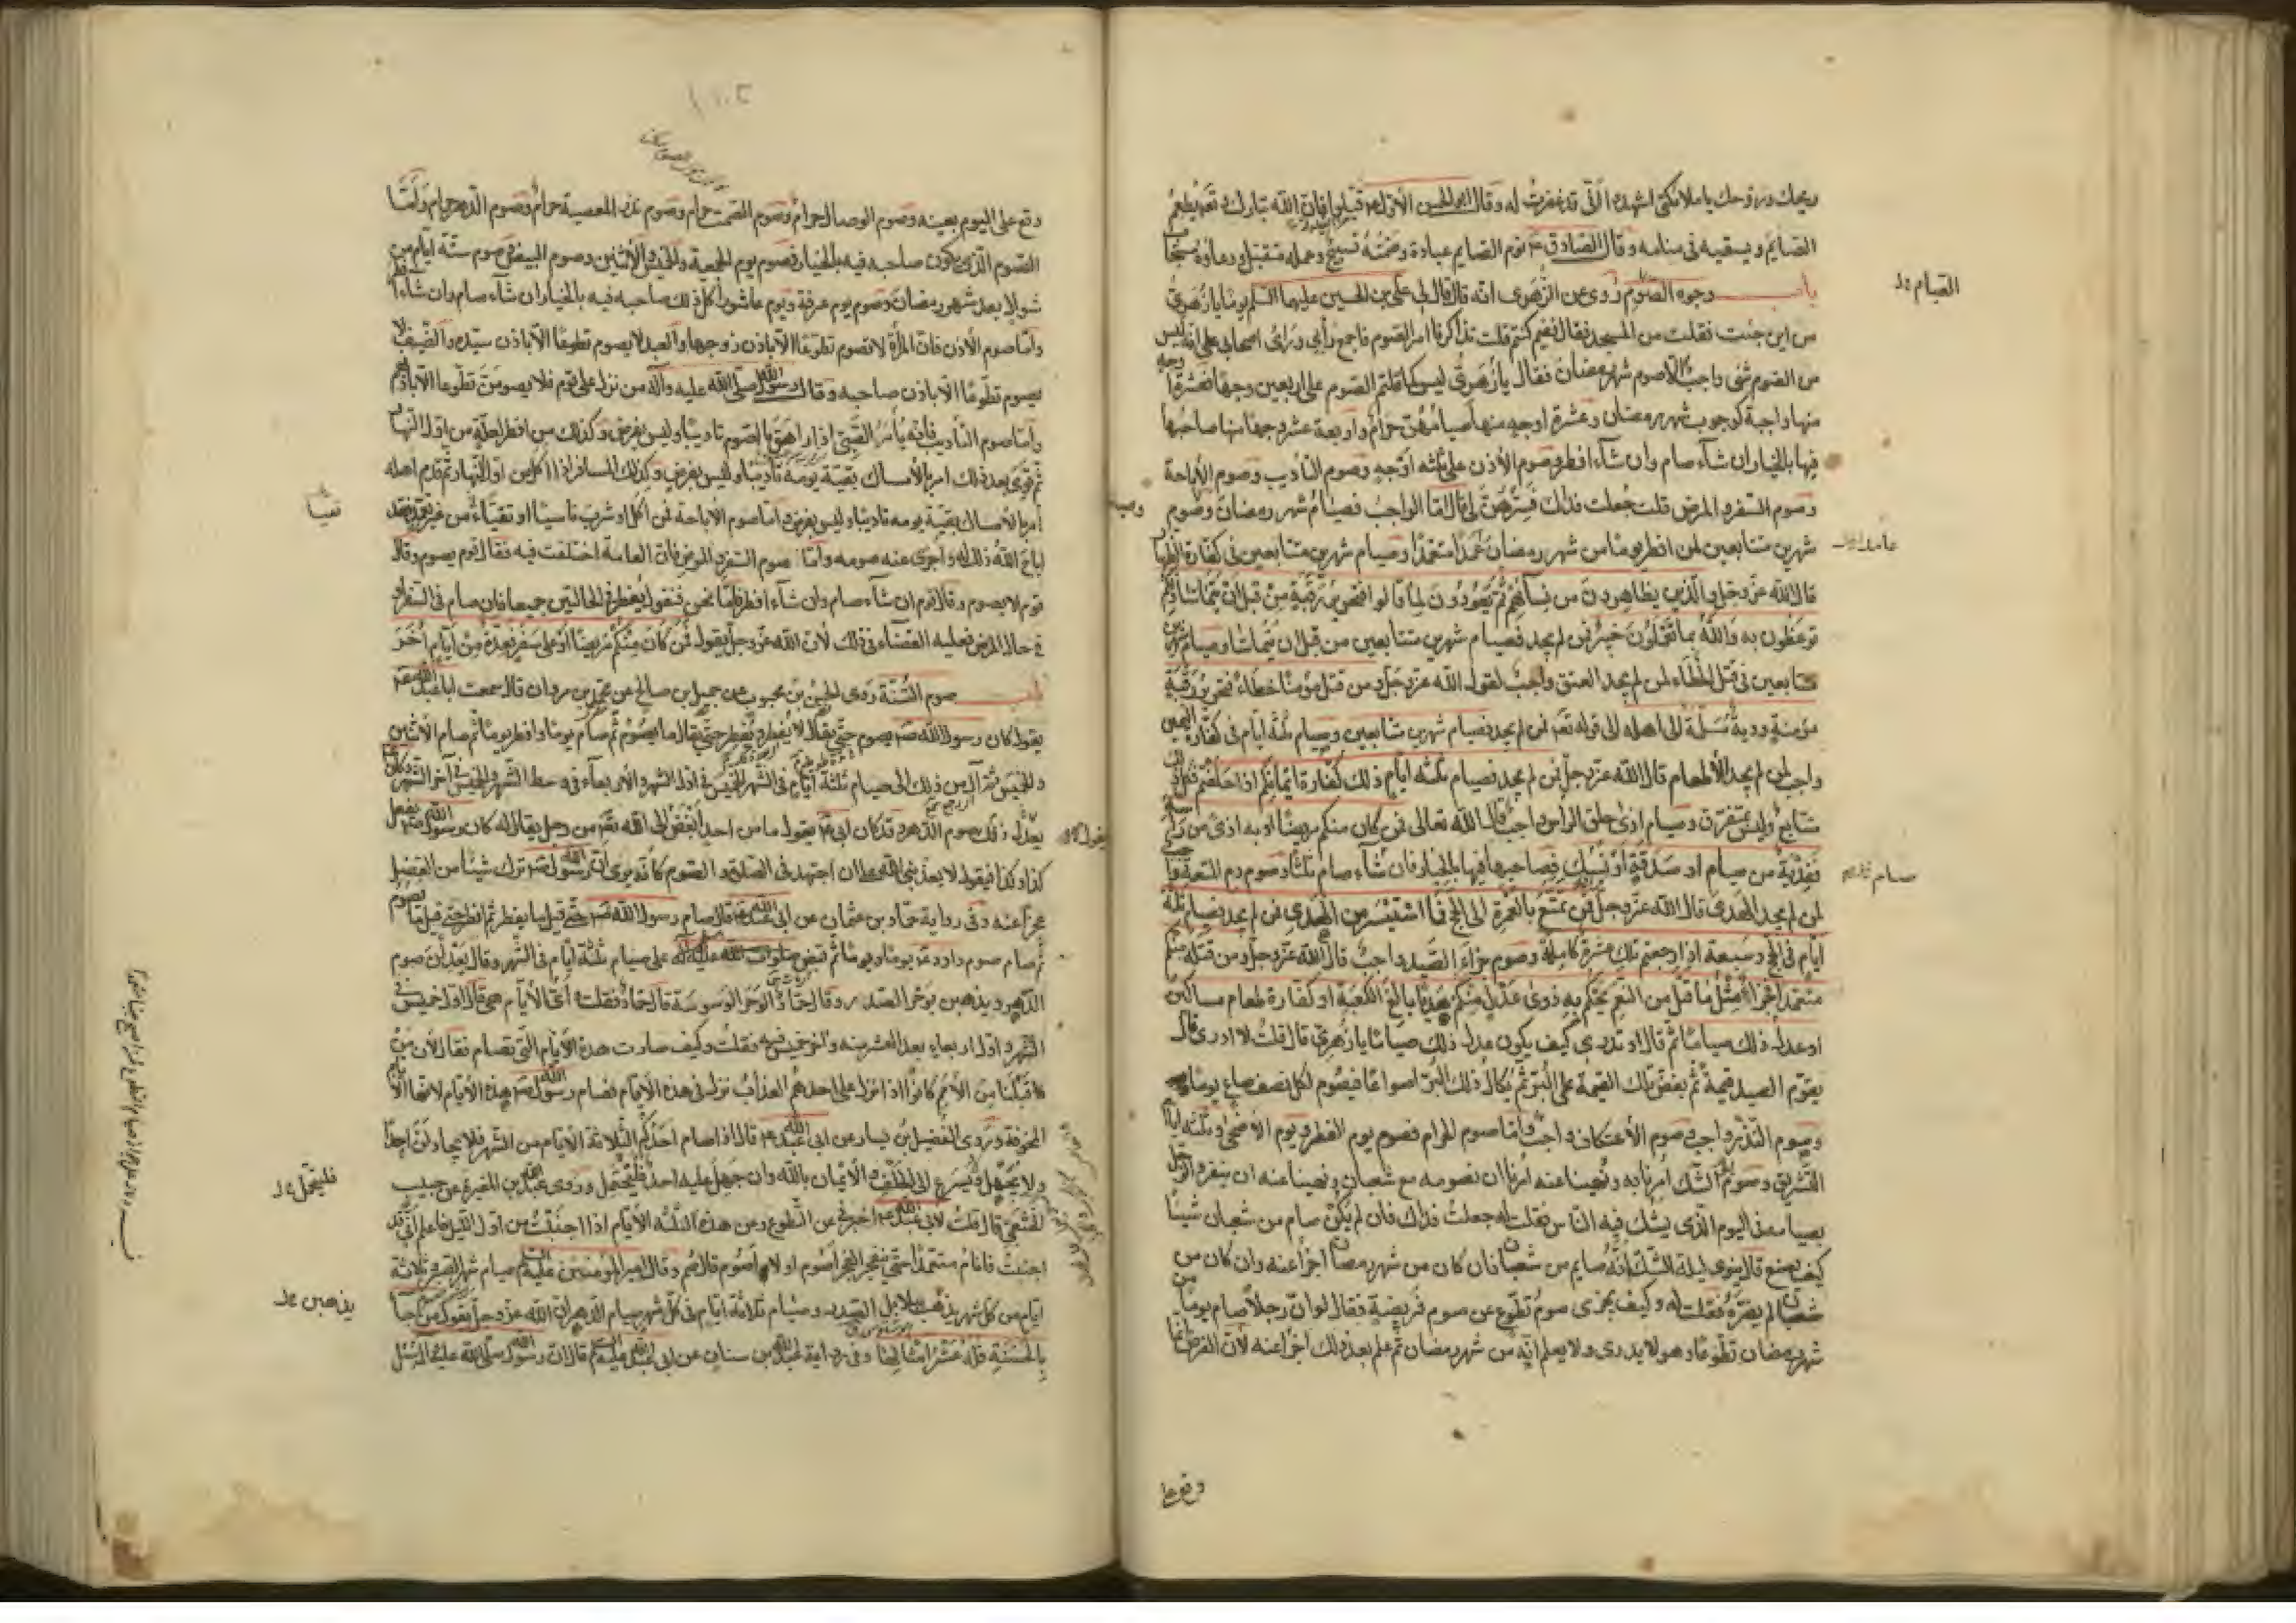 ريحك وروحك يا ملائكتي اشهدوا اني قد غفرت له وقال ابو الحسن الاول ع قيلوا فان الله تبارك وتعالى يطعم
الصايم ويسقيه في منامه وقال الصادق ع نوم الصايم عبادة وصمته تسبيح وعمله متقبل ودعاؤه مستجاب
باب وجوه الصوم روى عن الزهرى انه قال قال لي علي بن الحسين عليهما السلم يوما يا زهرى
من اين جئت فقلت من المسجد فقال ففيم كنتم قلت تذاكرنا امر الصوم فاجمع رأيي وراى اصحابي على انه ليس
من الصوم شئ واجب الا صوم شهر رمضان فقال يا زهرى ليس كما قلتم الصوم على اربعين وجها فعشرة اوجه
منها واجبة كوجوب شهر رمضان وعشرة اوجه منها صيامهن حرام واربعة عشر وجها منها صاحبها
فيها بالخيار ان شآء صام وان شآء افطر وصوم الاذن على ثلثه اوجه وصوم التأديب وصوم الاباحة
وصوم السفر والمرض قلت جعلت فداك فسرهن لي قال اما الواجب فصيام شهر رمضان وصوم
شهرين متتابعين لمن افطر يوما من شهر رمضان عمدا متعمدا وصيام شهرين متتابعين في كفارة الظهار
قال الله عز وجل والذين يظاهرون من نسآئهم ثم يعودون لما قالوا فتحرير رقبة من قبل ان يتماسا ذلكم
توعظون به والله بما تعملون خبير فمن لم يجد فصيام شهرين متتابعين من قبل ان يتماسا وصيام شهرين
متتابعين في قتل الخطاء لمن لم يجد العتق واجب لقول الله عز وجل ومن قتل مؤمنا خطاء فتحرير رقبة
مؤمنة ودية مسلمة الى اهله الى قوله تعالى فمن لم يجد فصيام شهرين متتابعين وصيام ثلثه ايام في كفارة اليمين
واجب لمن لم يجد الاطعام قال الله عز وجل فمن لم يجد فصيام ثلثه ايام ذلك كفارة ايمانكم اذا حلفتم كل ذلك
متتابع وليس بمتفرق وصيام اذى حلق الراس واجب قال الله تعالى فمن كان منكم مريضا او به اذى من راسه
ففدية من صيام او صدقة او نسك فصاحبها فيها بالخيار فان شآء صام ثلثا وصوم دم المتعة واجب
لمن لم يجد الهدى قال الله عز وجل فمن تمتع بالعمرة الى الحج فما استيسر من الهدى فمن لم يجد فصيام ثلثة
ايام في الحج وسبعة اذا رجعتم تلك عشرة كاملة وصوم جزاء الصيد واجب قال الله عز وجل ومن قتله منكم
متعمدا فجزاء مثل ما قتل من النعم يحكم به ذوى عدل منكم هديا بالغ الكعبة او كفارة طعام مساكين
او عدل ذلك صياما ثم قال او تدرى كيف يكون عدل ذلك صياما يا زهرى قال قلت لا ادرى قال
يقوم الصيد قيمة ثم يفض تلك القيمة على البر ثم يكال ذلك البر اصواعا فيصوم لكل نصف صاع يوما
وصوم النذر واجب وصوم الاعتكاف واجب واما صوم الحرام فصوم يوم الفطر ويوم الاضحى وثلثه ايام
التشريق وصوم يوم الشك امرنا به ونهينا عنه امرنا ان نصومه مع شعبان ونهينا عنه ان ينفرد الرجل
بصيامه في اليوم الذى يشك فيه الناس فقلت له جعلت فداك فان لم يكن صام من شعبان شيئا
كيف يصنع قال ينوى ليلة الشك انه صايم من شعبان فان كان من شهر رمضان اجزأ عنه وان كان من
شعبان لم يضره فقلت له وكيف يجزى صوم تطوع عن صوم فريضة فقال لو ان رجلا صام يوما من
شهر رمضان تطوعا وهو لا يدرى ولا يعلم انه من شهر رمضان ثم علم بعد ذلك اجزأ عنه لان الفرض انما
وقع على
الصيام
صام
وقع على اليوم بعينه وصوم الوصال حرام وصوم الصمت حرام وصوم نذر المعصية حرام وصوم الدهر حرام واما
الصوم الذى يكون صاحبه فيه بالخيار فصوم يوم الجمعة والخميس والاثنين وصوم البيض وصوم ستة ايام من
شوال بعد شهر رمضان وصوم يوم عرفة ويوم عاشورا كل ذلك صاحبه فيه بالخيار ان شآء صام وان شآء افطر
واما صوم الاذن فان المرأة لا تصوم تطوعا الا باذن زوجها والعبد لا يصوم تطوعا الا باذن سيده والضيف لا
يصوم تطوعا الا باذن صاحبه وقال رسول الله صلى الله عليه وآله من نزل على قوم فلا يصومن تطوعا الا باذنهم
واما صوم التأديب فانه يأمر الصبي اذا راهق بالصوم تاديبا وليس بفرض وكذلك من افطر لعلة من اول النهار
ثم قوى بعد ذلك امر بالامساك بقية يومه تأديبا وليس بفرض وكذلك المسافر اذا اكل من اول النهار ثم قدم اهله
امر بالامساك بقية يومه تاديبا وليس بفرض واما صوم الاباحة فمن اكل او شرب ناسيا او تقيأ من غير تعمد فقد
اباح الله ذلك له واجزى عنه صومه واما صوم السفر والمرض فان العامة اختلفت فيه فقال قوم يصوم وقال
قوم لا يصوم وقال قوم ان شآء صام وان شآء افطر فاما نحن فنقول يفطر في الحالتين جميعا فان صام في السفر او
في حال المرض فعليه القضاء في ذلك لان الله عز وجل يقول فمن كان منكم مريضا او على سفر فعدة من ايام اخر
باب صوم السنة روى الحسن بن محبوب عن جميل بن صالح عن محمد بن مروان قال سمعت ابا عبد الله ع
يقول كان رسول الله ص يصوم حتى يقال لا يفطر ويفطر حتى يقال ما يصوم ثم صام يوما وافطر يوما ثم صام الاثنين
والخميس ثم آل من ذلك الى صيام ثلثة ايام في الشهر الخميس في اول الشهر والاربعآء في وسط الشهر والخميس في آخر الشهر وكان
يقول ذلك صوم الدهر وقد كان ابي ع يقول ما من احد ابغض الى الله تعالى من رجل يقال له كان رسول الله ص يفعل
كذا وكذا فيقول لا يعذبني الله على ان اجتهد في الصلوة والصوم كانه يرى ان رسول الله ص ترك شيئا من الفضل
عجزا عنه وفي رواية حماد بن عثمان عن ابي عبد الله ع قال صام رسول الله ص حتى قيل ما يفطر ثم افطر حتى قيل ما يصوم
ثم صام صوم داود ع يوما ويوما ثم قبض صلوات الله عليه وآله على صيام ثلثة ايام في الشهر وقال يعدلن صوم
الدهر ويذهبن بوحر الصدر وقال حماد الوحر الوسوسة قال حماد فقلت اى الايام هي قال اول خميس في
الشهر واول اربعاء بعد العشر منه وآخر خميس فيه فقلت وكيف صارت هذه الايام التى تصام فقال لان من
قبلنا من الامم كانوا اذا نزل على احدهم العذاب نزل في هذه الايام فصام رسول الله ص هذه الايام لانها الايام
المخوفة وروى الفضيل بن يسار عن ابي عبد الله ع قال اذا صام احدكم الثلاثة الايام من الشهر فلا يجادلن احدا
ولا يجهل ولا يسرع الى الحلف والايمان بالله وان جهل عليه احد فليتحمل وروى عبد الله بن المغيرة عن حبيب
الخثعمى قال قلت لابي عبد الله ع اخبرني عن التطوع وعن هذه الثلثه الايام اذا اجنبت من اول الليل فاعلم اني قد
اجنبت فانام متعمدا حتى ينفجر الفجر اصوم او لا اصوم قال صم وقال امير المؤمنين عليه السلم صيام شهر الصبر وثلاثة
ايام من كل شهر يذهب ببلابل الصدر وصيام ثلاثة ايام في كل شهر صيام الدهر ان الله عز وجل يقول من جاء
بالحسنة فله عشر امثالها وفي رواية عبد الله بن سنان عن ابي عبد الله عليه السلم قال ان رسول الله صلى الله عليه وآله سئل
فليتحمل
يذهبن